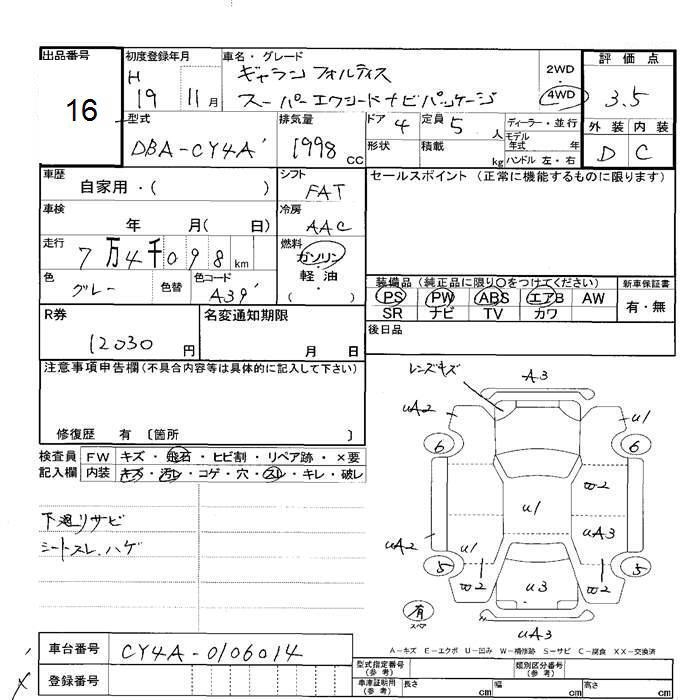 出品番号
16
初度登録年月
H
19 11月
車名・グレード
ギャラン フォルティス
スーパーエクシードナビパッケージ
2WD
・
4WD
評価点
3.5
外装 内装
D C
型式
DBA-CY4A
排気量
1998 CC
ドア 4
定員 5 人
形状
積載 kg
ディーラー・並行
モデル
年式 年
ハンドル 左・右
車歴
自家用・( )
シフト
FAT
セールスポイント (正常に機能するものに限ります)
車検
年 月( 日)
冷房
AAC
走行
7万4千098 km
燃料
ガソリン
・
軽油
( )
色
グレー
色替
色コード
A39
装備品 (純正品に限り○をつけてください)
PS PW ABS エアB AW
SR ナビ TV カワ
新車保証書
有・無
R券
12030 円
名変通知期限
月 日
後日品
注意事項申告欄 (不具合内容等は具体的に記入して下さい)
修復歴 有 〔箇所 〕
検査員
記入欄
FW キズ・飛石・ヒビ割・リペア跡・×要
内装 キズ・汚レ・コゲ・穴・スレ・キレ・破レ
下廻リサビ
シートスレ.ハゲ
レンズキズ
A3
uA2
u1
6
6
u1
uA2
uA3
u1
5
5
u3
有
スペア
uA3
A-キズ E-エクボ U-凹み W-補修跡 S-サビ C-腐食 XX-交換済
車台番号
CY4A-0106014
登録番号
型式指定番号
(参考)
類別区分番号
(参考)
車庫証明用
(参考)
長さ cm
幅 cm
高さ cm